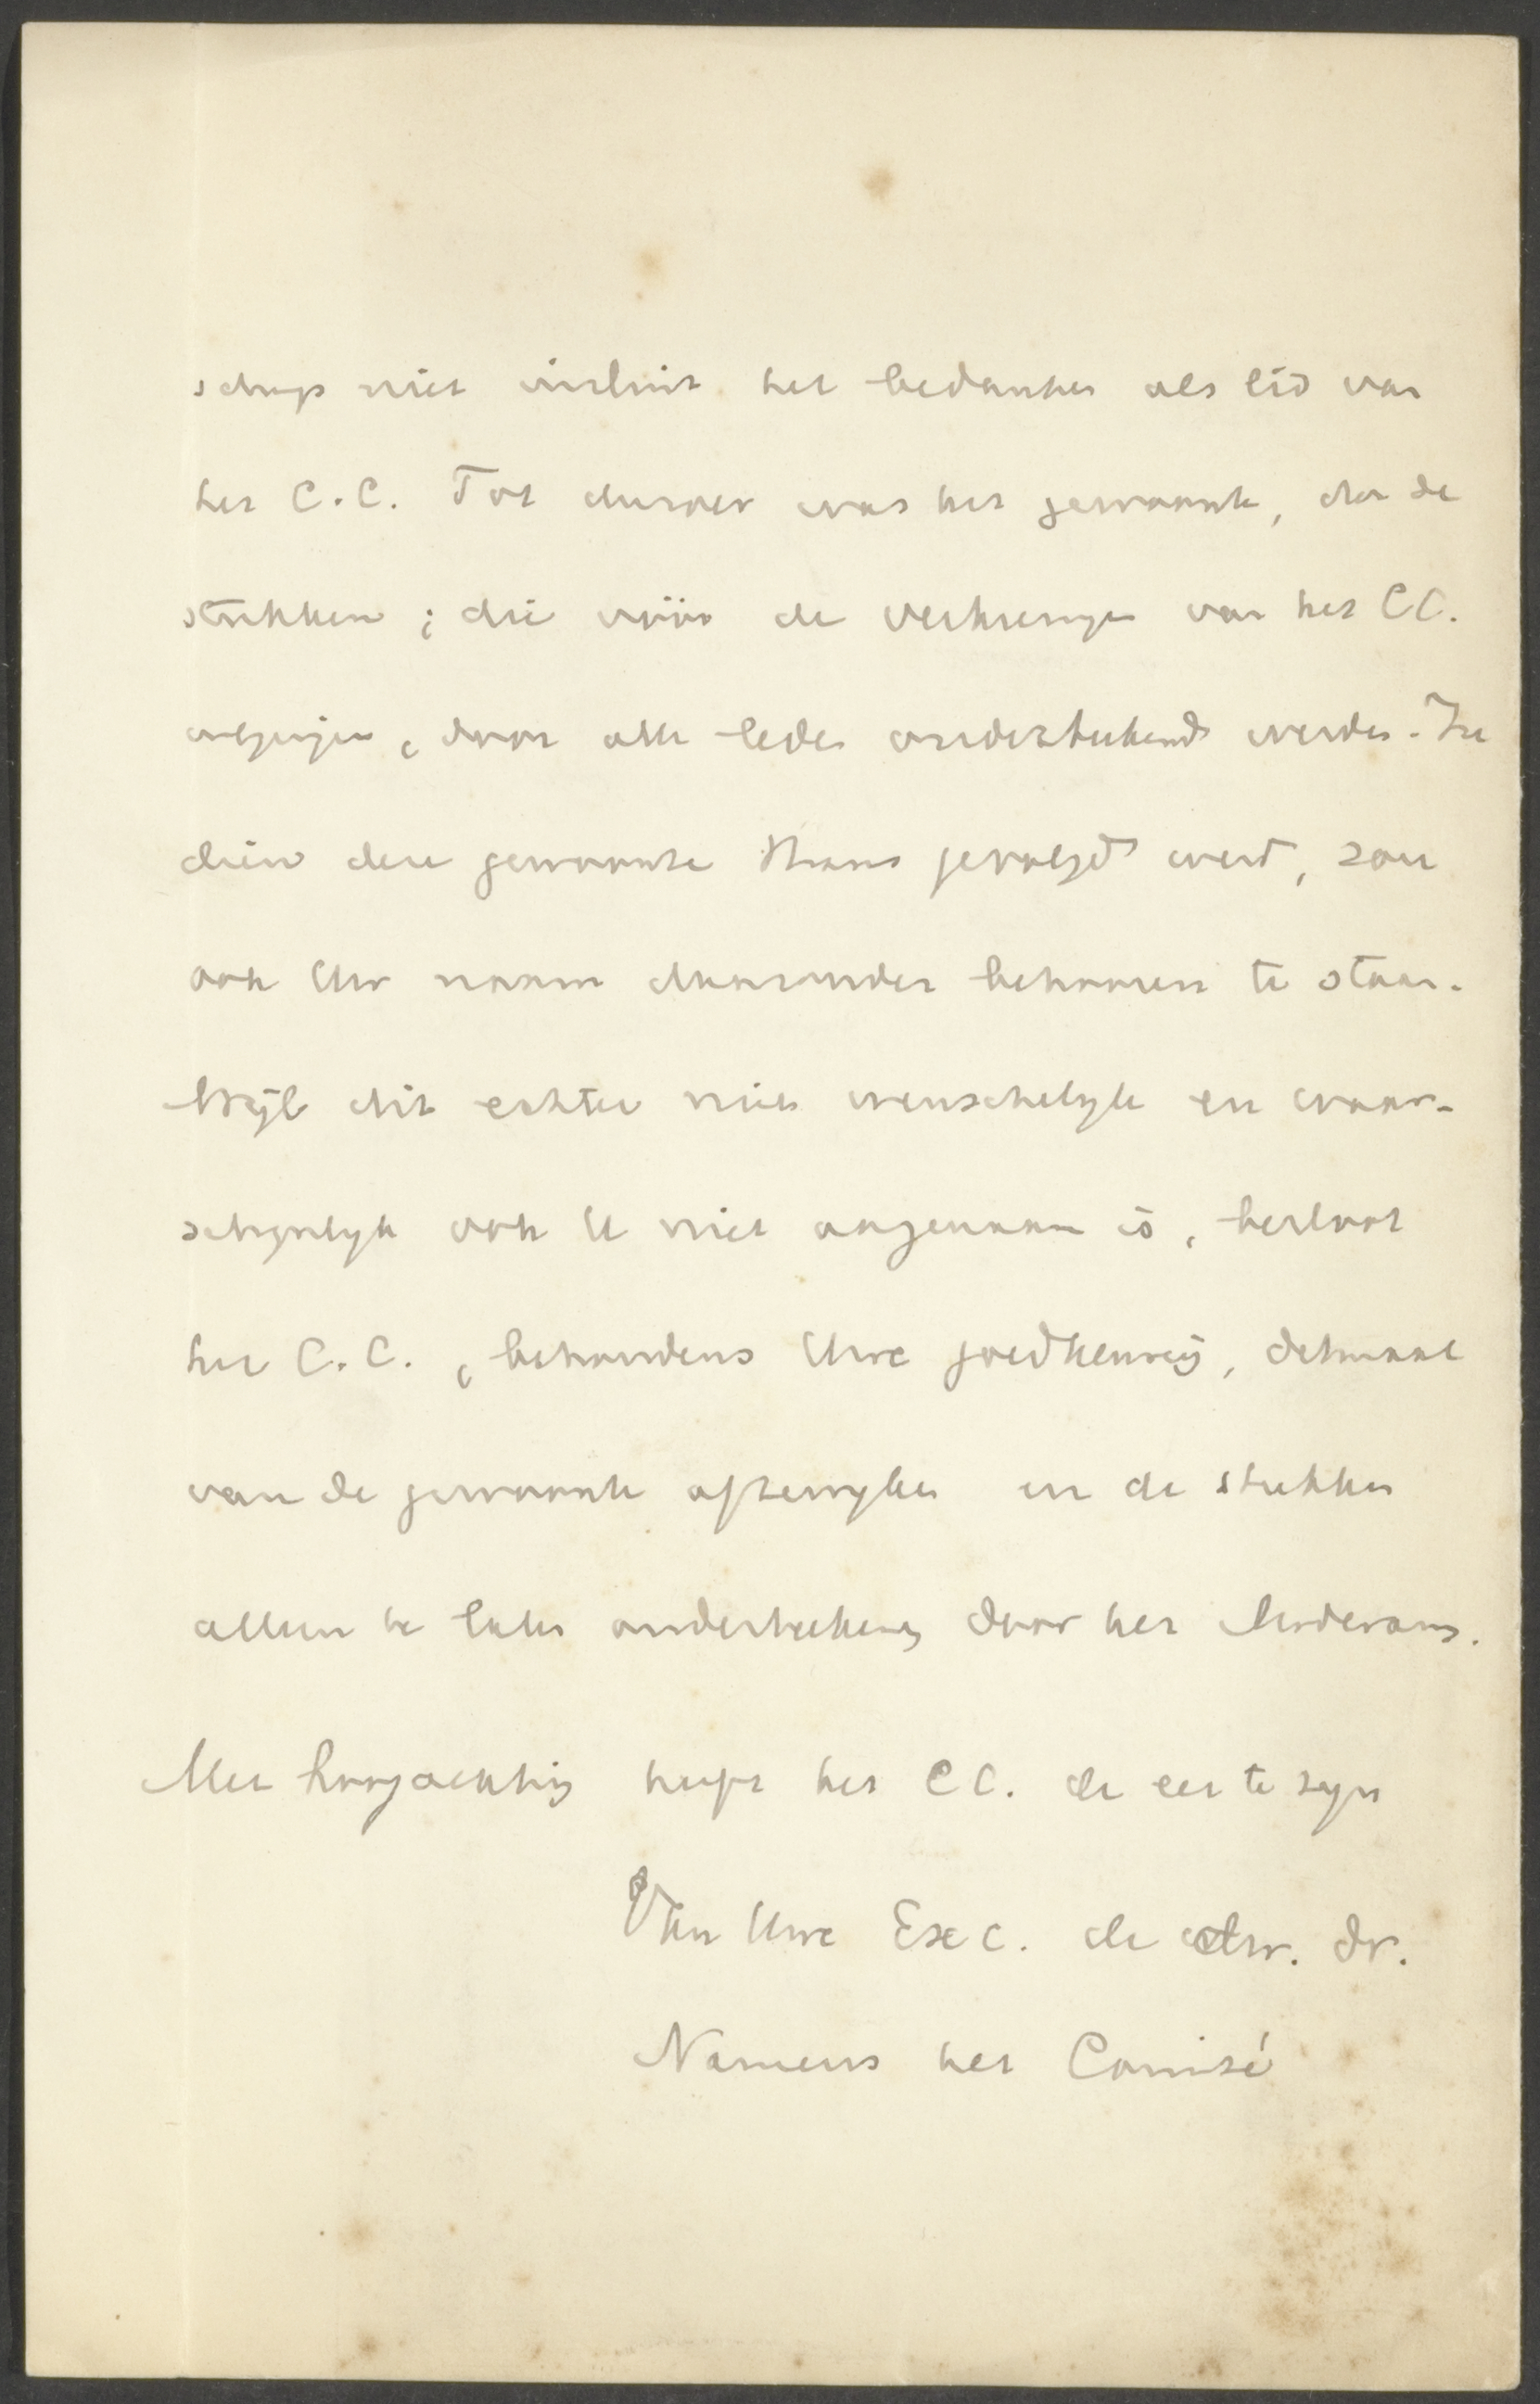 schap niet insluit het bedanken als lid van
het C.C. Tot dusver was het gewoonte, dat de
stukken, die vóór de verkiezingen van het CC.
uitgingen, door alle leden onderteekend werden. In
dien deze gewoonte thans gevolgd werd, zou
ook Uw naam daaronder behooren te staan.
Wijl dit echter niet wenschelijk en waar-
schijnlijk ook U niet aangenaam is, besloot
het C.C., behoudens Uwe goedkeuring, ditmaal
van de gewoonte af te wijken en de stukken
alleen te laten onderteekenen door het Moderamen.
Met hoogachting heeft het CC. de eer te zijn
Van Uwe Exc. de dw. dr.
Namens het Comité